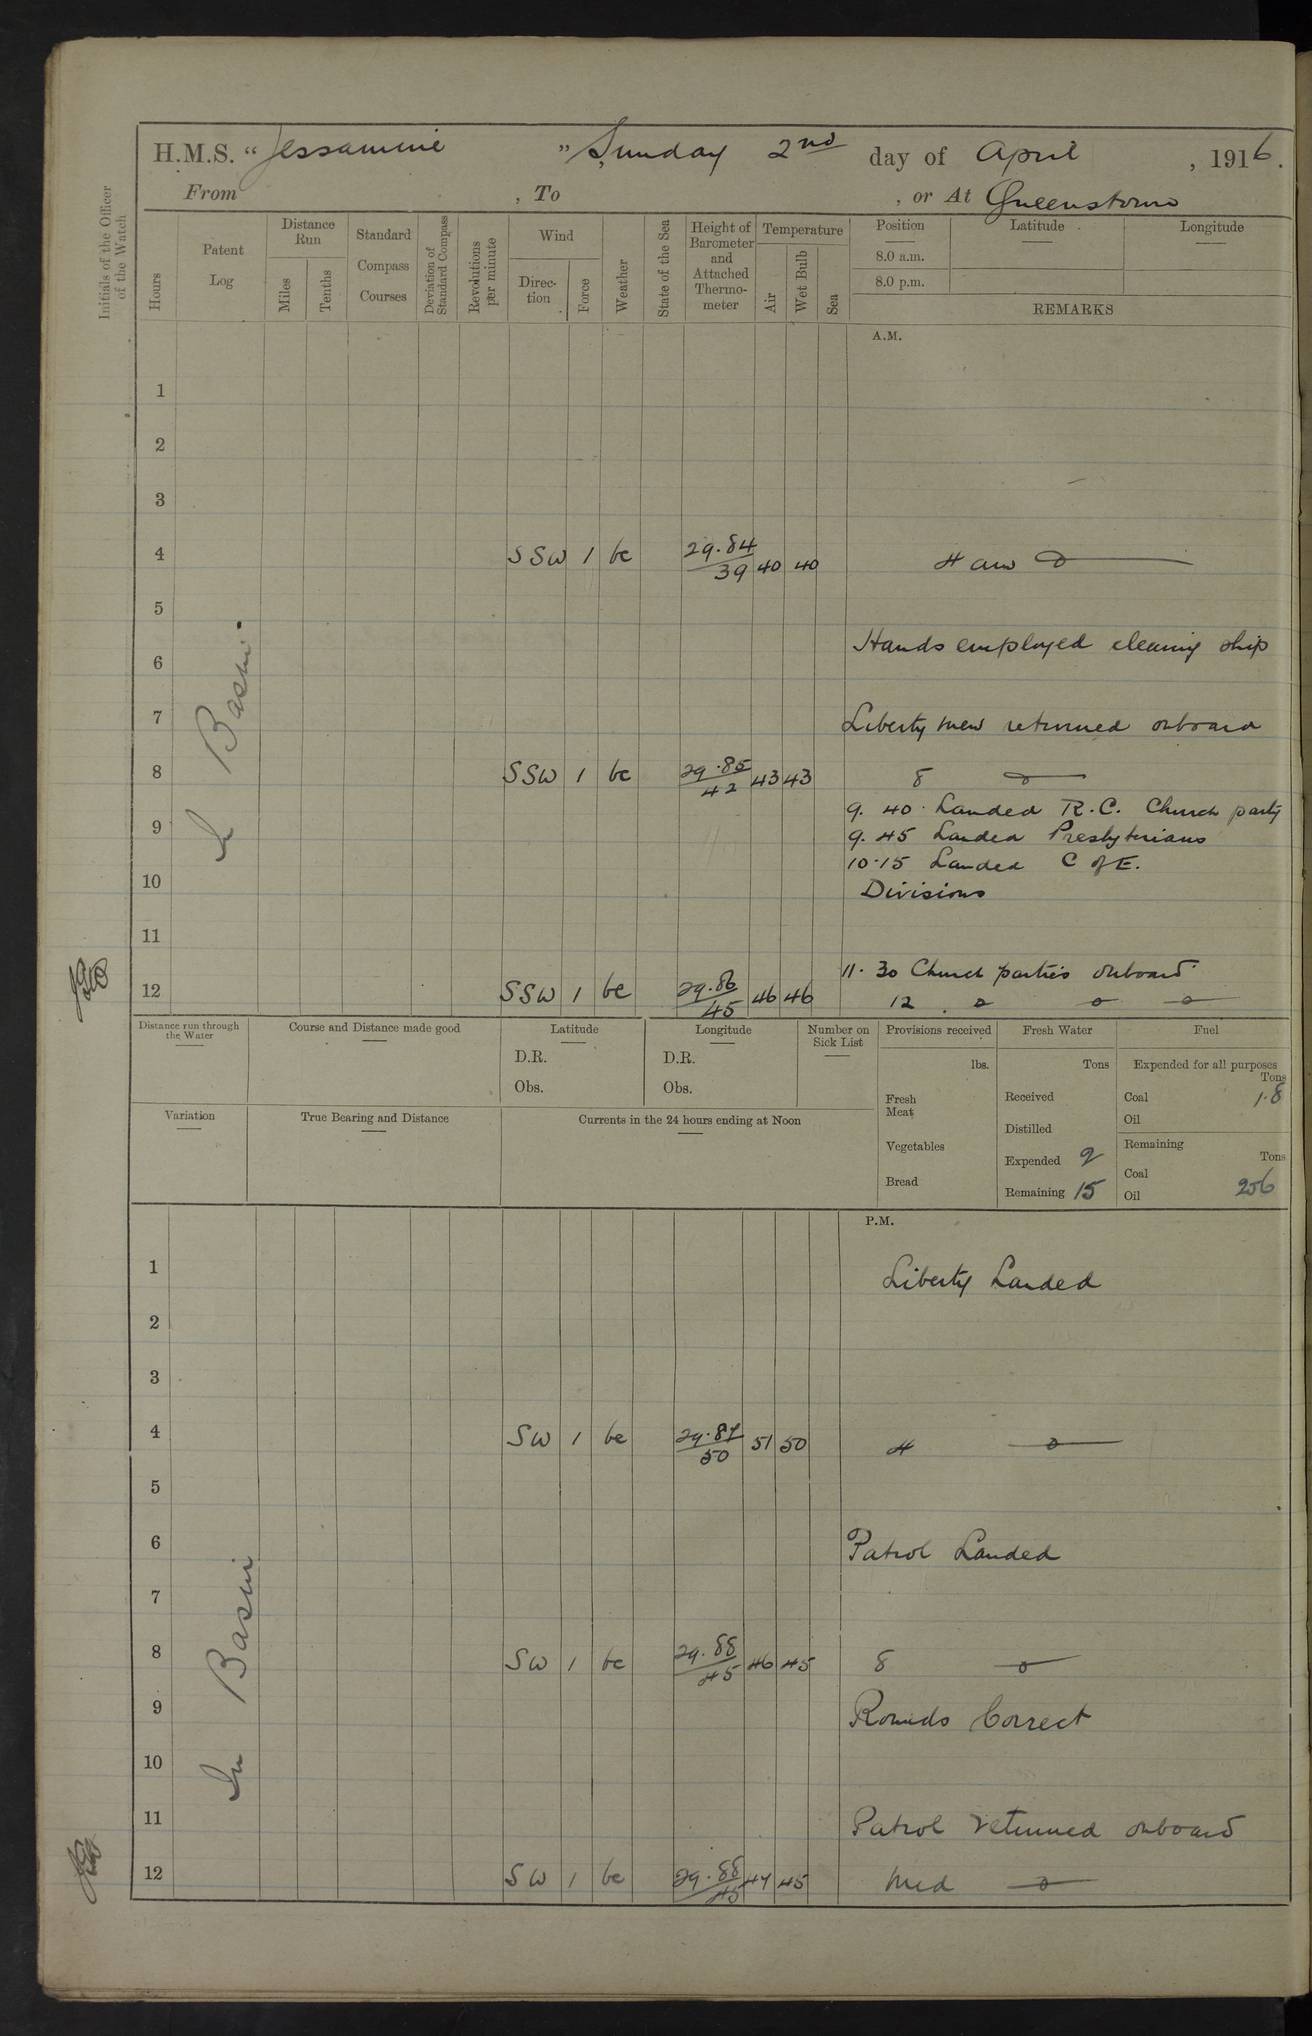 H.M.S. "Jessamine", Sunday 2nd day of April, 1916.
From , To , or At Queenstown
Initials of the Officer of the Watch
Hours
Patent Log
Distance Run
Miles
Tenths
Standard Compass Courses
Deviation of Standard Compass
Revolutions per minute
Wind
Direction
Force
Weather
State of the Sea
Height of Barometer and Attached Thermometer
Temperature
Air
Wet Bulb
Sea
Position
8.0 a.m.
8.0 p.m.
Latitude
Longitude
REMARKS
A.M.
1
2
3
4 SSW 1 bc 29.84/39 40 40
5
6 Hands employed cleaning ship
7 Liberty men returned onboard
8 SSW 1 bc 29.85/42 43 43 8
9. 40 Landed R.C. Church party
9 9. 45 Landed Presbyterians
10.15 Landed C of E.
10 Divisions
11
11. 30 Church parties onboard
12 SSW 1 bc 29.86/45 46 46 12
In Basin
Distance run through the Water
Course and Distance made good
Latitude
D.R.
Obs.
Longitude
D.R.
Obs.
Number on Sick List
Provisions received
lbs.
Fresh Meat
Vegetables
Bread
Fresh Water
Tons
Received
Distilled
Expended 2
Remaining 15
Fuel
Expended for all purposes
Tons
Coal 1.8
Oil
Remaining
Tons
Coal
Oil 256
Variation
True Bearing and Distance
Currents in the 24 hours ending at Noon
P.M.
1 Liberty Landed
2
3
4 SW 1 bc 29.87/50 51 50 4
5
6 Patrol Landed
7
8 SW 1 bc 29.88/45 46 45 8
9 Rounds Correct
10
11 Patrol returned onboard
12 SW 1 bc 29.88/45 47 45 Mid
In Basin